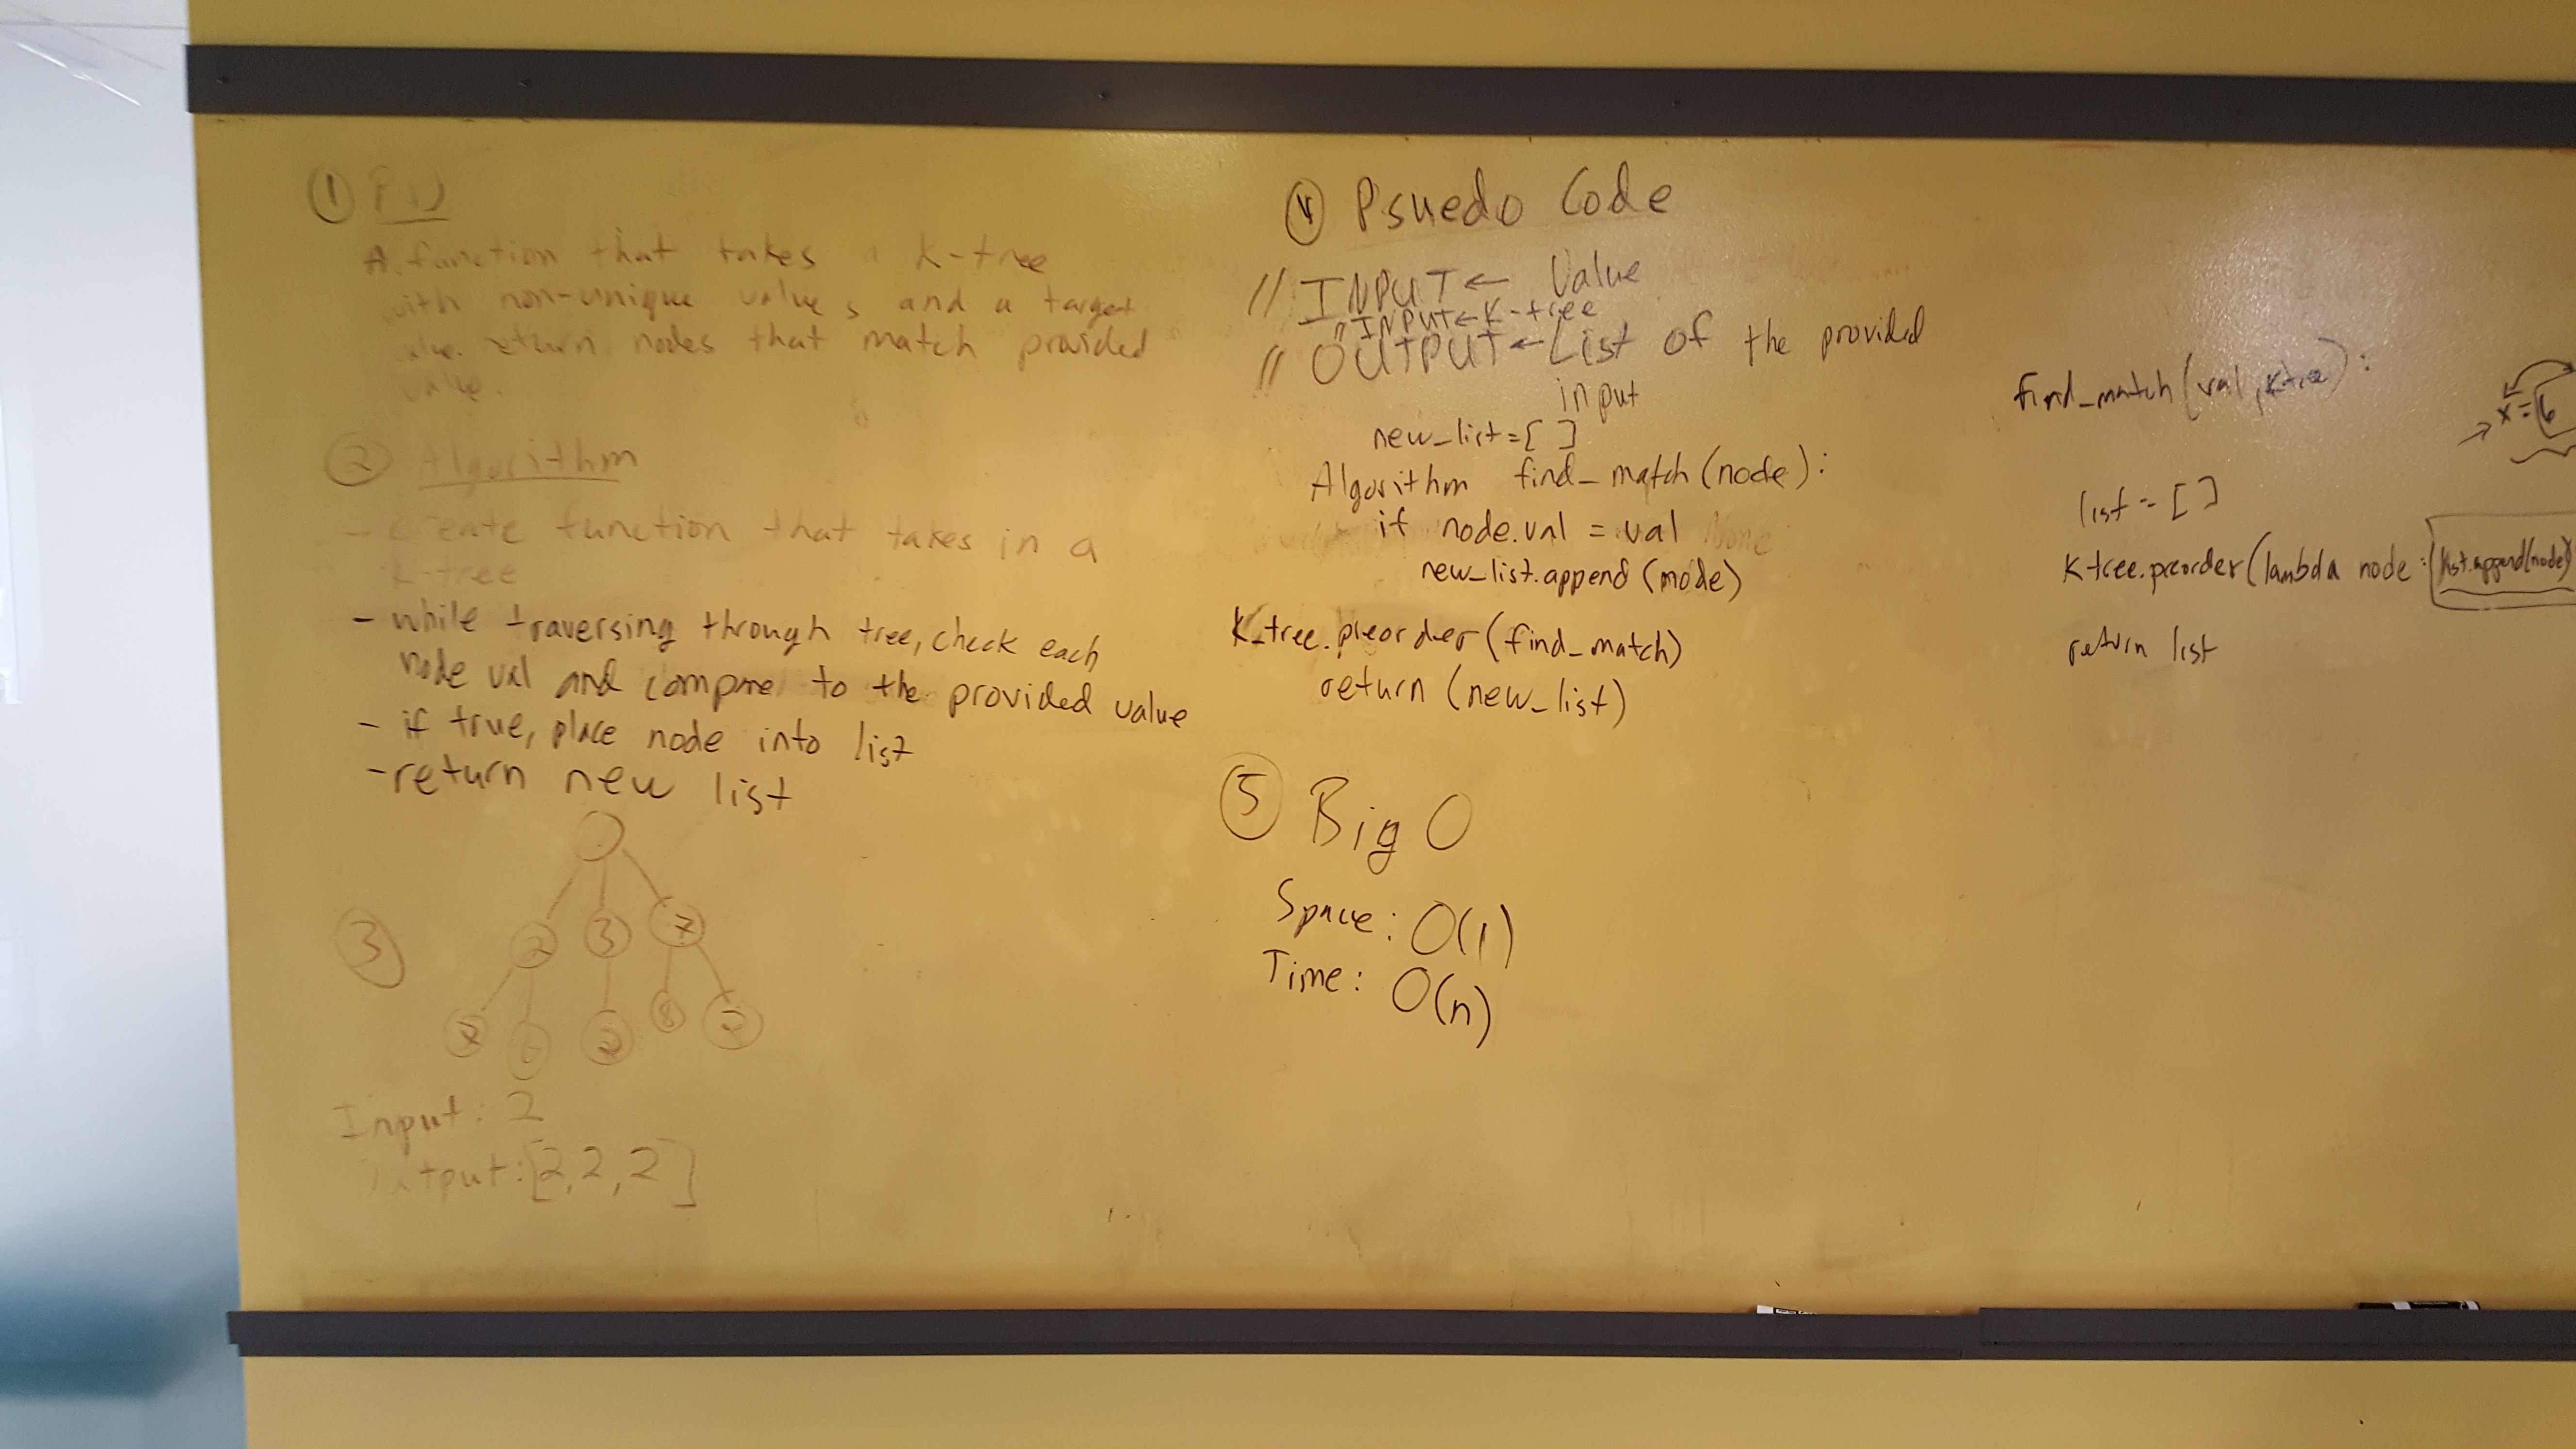 ① PD
A function that takes a K-tree
with non-unique values and a target
value. return nodes that match provided
value.
② Algorithm
- create function that takes in a
K-tree
- while traversing through tree, check each
node val and compare to the provided value
- if true, place node into list
- return new list
③
2 3 7
7 6 2 8 2
Input: 2
Output: [2,2,2]
④ Psuedo Code
// INPUT ← Value
// INPUT ← K-tree
// OUTPUT ← List of the provided
input
new_list = [ ]
Algorithm find_match(node):
if node.val = val None
new_list.append(node)
K_tree.preorder(find_match)
return (new_list)
⑤ Big O
Space: O(1)
Time: O(n)
find_match(val, ktree):
list = [ ]
Ktree.preorder(lambda node: list.append(node)
return list
x = 6